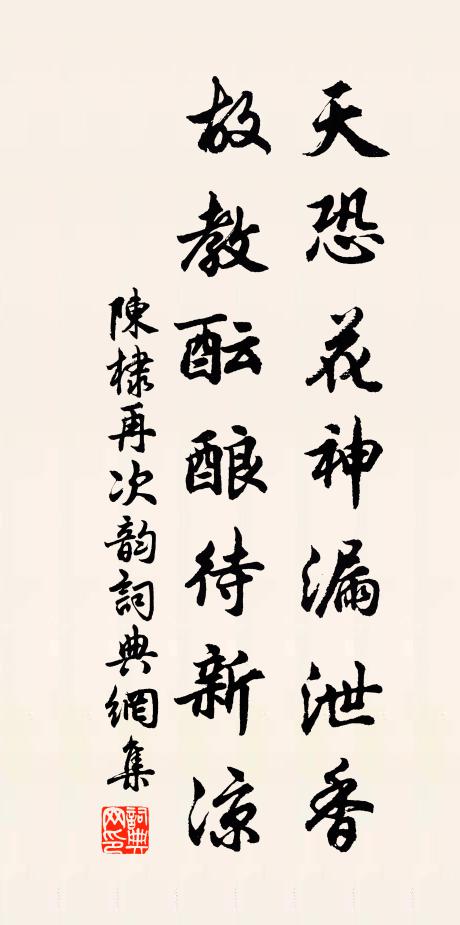 天恐花神漏泄香
故教酝酿待新凉
陳棣再次韵詞典網集
詞典網印